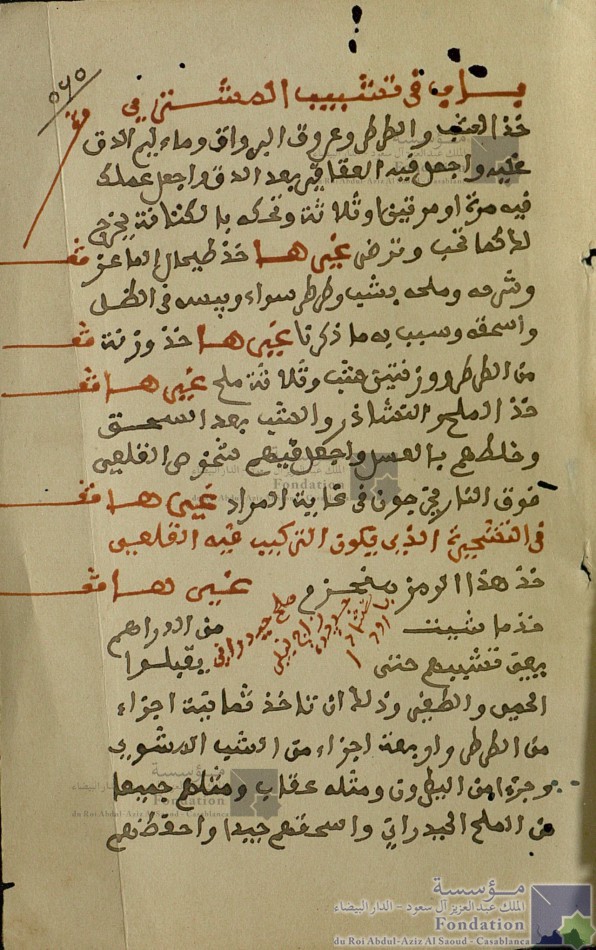 ٥٦٥
باب في تشبيب المشتري
خذ الشب والطرطر وعروق البرواق وماء
عليه واجعل فيه العقاقير بعد الدق واجعل عملك
فيه مرة او مرتين او ثلاثة وتحكه بالكتافة يخرج
لك كما تحب وترضى غيى هــا خذ طيحال الماعز
وشرحه وملحه بشب وطرطر سواء ويبسه في الظل
واسحقه وسبب به ما ذكرنا غيى هــا خذ وزنة
من الطرطر ووزنتين شب وثلاثة ملح غيى هــا
خذ الملح والنشاذر والشب بعد السحق
وخلطهم بالعسل واجعل فيهم شخوص القلعي
فوق النار يخرجون في غاية المراد غيى هــا
في التفجيرة الذي يكون التركيب فيه القلعي
خذ هذا الرمز غيى هــا
خذ ما شيت من الدراهم
ملح حيدراني
تشبيبهم حتى يقبلوا
الحمى والطفي وذلك ان تاخذ ثمانية اجزاء
من الطرطر واربعة اجزاء من الشب المشوي
وجزءا من البطرون ومثله عقاب ومثلهم جميعا
من الملح الحيدراني واسحقهم جيدا واحفظهم
مؤسسة
الملك عبد العزيز آل سعود - الدار البيضاء
Fondation
du Roi Abdul-Aziz Al Saoud - Casablanca